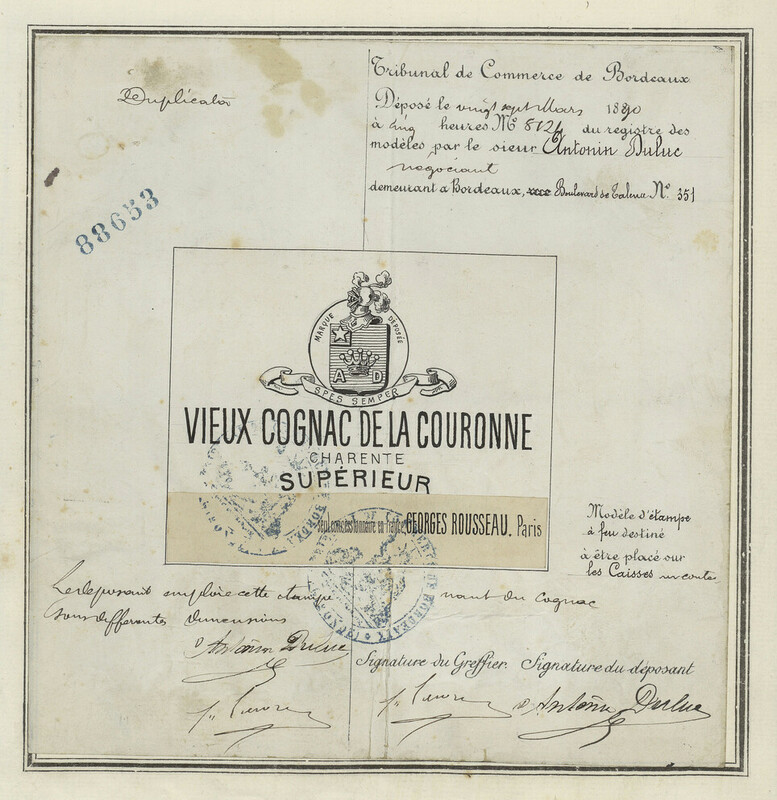 Duplicata
Tribunal de Commerce de Bordeaux
Déposé le vingt sept Mars 1890
à cinq heures Nº 8124 du registre des
modèles par le sieur Antonin Duluc
négociant
demeurant a Bordeaux, Boulevard de Talence Nº 351
88653
MARQUE DÉPOSÉE
A D
SPES SEMPER
VIEUX COGNAC DE LA COURONNE
CHARENTE
SUPÉRIEUR
Seul concessionnaire en France, GEORGES ROUSSEAU. Paris
Modèle d'étampe
à feu destiné
à être placé sur
les Caisses en conte
nant du cognac
Le deposant emploie cette étampe
sous differentes dimensions
Antonin Duluc
Signature du Greffier. Signature du déposant
Antonin Duluc